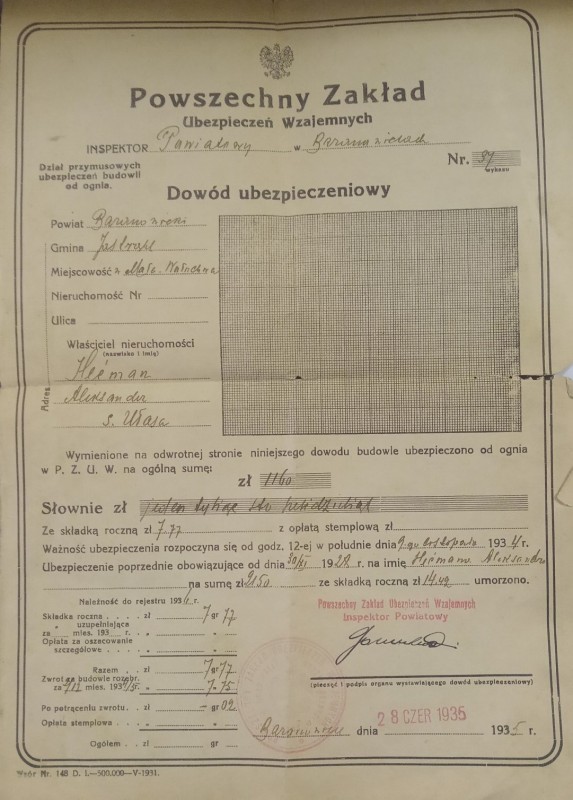 Powszechny Zakład
Ubezpieczeń Wzajemnych
INSPEKTOR Powiatowy w Baranowiczach
Dział przymusowych
ubezpieczeń budowli
od ognia.
Nr. 37
wykazu
Dowód ubezpieczeniowy
Powiat
Gmina
Miejscowość
Nieruchomość Nr
Ulica
Właściciel nieruchomości
(nazwisko i imię)
Hejman
Adres
Aleksander
s. Ułasa
Wymienione na odwrotnej stronie niniejszego dowodu budowle ubezpieczono od ognia
w P. Z. U. W. na ogólną sumę:
zł 1160
Słownie zł jeden tysiąc sto sześćdziesiąt
Ze składką roczną zł 7.77 z opłatą stemplową zł
Ważność ubezpieczenia rozpoczyna się od godz. 12-ej w południe dnia 9-go listopada 1934 r.
Ubezpieczenie poprzednie obowiązujące od dnia 30/XI 1928 r. na imię Hejmana Aleksandra
na sumę zł 2150 ze składką roczną zł umorzono.
Należność do rejestru 193 r.
Składka roczna zł 7 gr 77
" uzupełniająca
za mies. 193 r. " "
Opłata za oszacowanie
szczegółowe " "
Razem zł 7 gr 77
Zwrot za budowle rozebr.
za mies. 193 r. " 7 " 75
Po potrąceniu zwrotu zł – gr 02
Opłata stemplowa " "
Ogółem zł gr
Powszechny Zakład Ubezpieczeń Wzajemnych
Inspektor Powiatowy
(pieczęć i podpis organu wystawiającego dowód ubezpieczeniowy)
Baranowicze dnia 28 CZER 1935 1935 r.
Wzór Nr. 148 D. I.—500.000—V-1931.